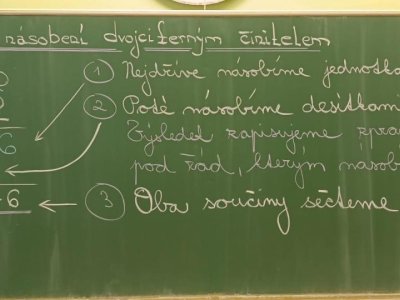 násobení dvojciferným činitelem
① Nejdříve násobíme jednotka
② Poté násobíme desítkami
Výsledek zapisujeme zpra
pod řád, kterým násobí
6
6
③ Oba součiny sčteme